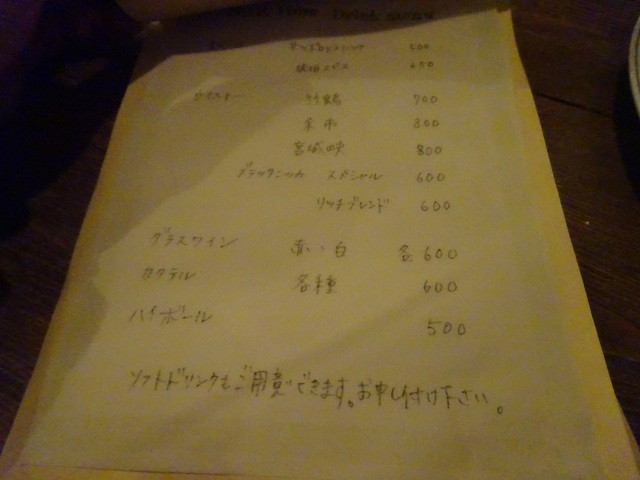 Time Drink menu
500
琥珀ヱビス 650
ウイスキー 竹鶴 700
余市 800
宮城峡 800
ブラックニッカ スペシャル 600
リッチブレンド 600
グラスワイン 赤・白 各600
カクテル 各種 600
ハイボール 500
ソフトドリンクもご用意できます。お申し付け下さい。